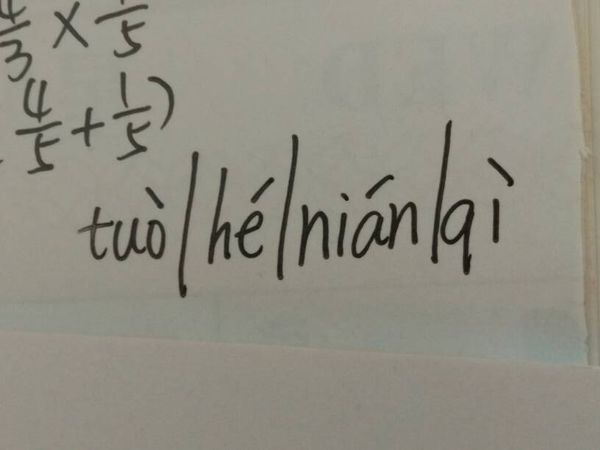 4/3 × 1/5
4/5 + 1/5)
tuò/hé/nián/qì